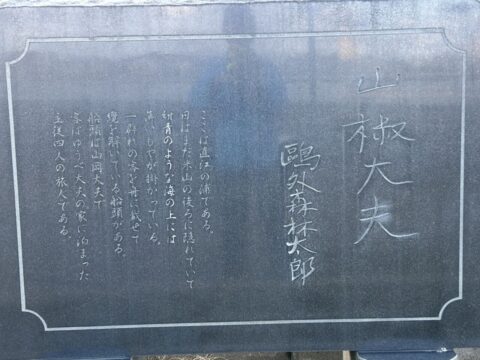 山椒大夫
鷗外森林太郎
ここは直江の浦である。
日はまだ米山の後ろに隠れていて
紺青のような海の上には
薄いもやが掛かっている。
一群れの客を舟に載せて
纜を解いている船頭がある。
船頭は山岡大夫で
客はゆうべ大夫の家に泊まった
主従四人の旅人である。